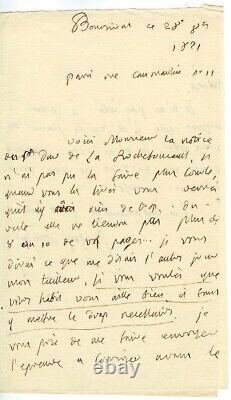 ce 28
1821
paris rue caumartin n° 11
voici Monsieur la notice
du Duc de La Rochefoucault, je
n'ai pas pu la faire plus courte,
quand vous la lirez vous verrez
qu'il n'y a rien de trop.
elle ne tiendra pas plus de
8 ou 10 de vos pages. je vous
dirai ce que me disait l'autre jour
mon tailleur, si vous voulez que
votre habit vous aille bien il faut
y mettre le drap nécessaire. je
vous prie de me faire envoyer
l'épreuve a corriger avant le